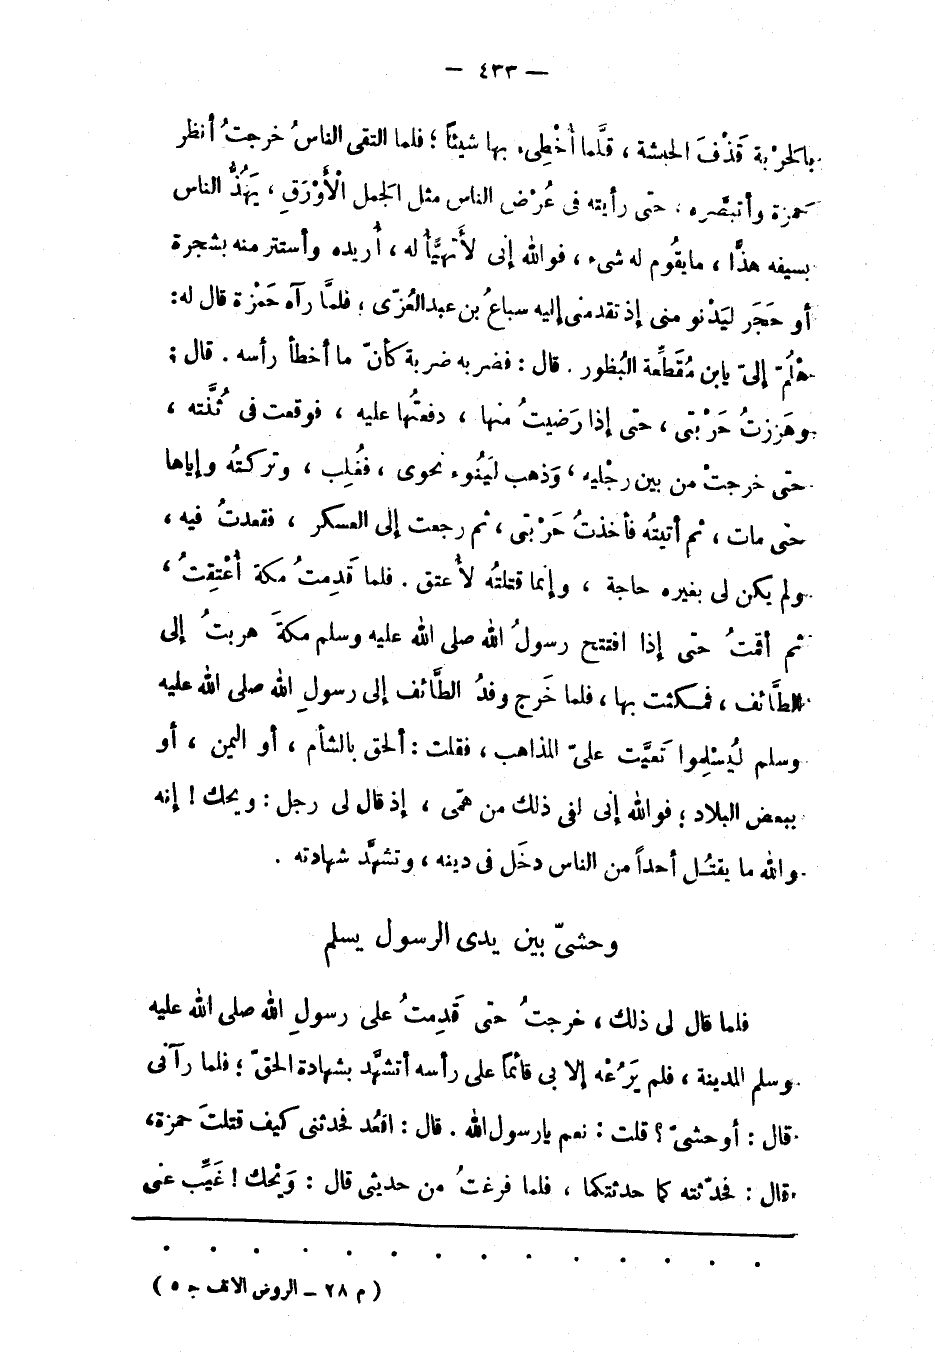 — ٤٣٣ —
بالحَرْبة قَذْفَ الحبشة ، قلَّما أُخْطِىء بها شيئاً ؛ فلما التقى الناسُ خرجتُ أنظر
حمزة وأتبصَّره ، حتى رأيته فى عُرْض الناس مثل الجمل الْأَوْرَقِ ، يَهُذُّ الناس
بسيفه هذًّا ، مايقُوم له شىء ، فوالله إنى لأَتهيَّأُ له ، أُريده وأستتر منه بشجرة
أو حَجَر ليَدْنو منى إذ تقدمنى إليه سباعُ بن عبدالعُزّى ؛ فلمَّا رآه حَمْزة قال له:
هَلُمّ إلىّ يابن مُقَطِّعة البُظور . قال : فضربه ضربة كأنّ ما أخطأ رأسه . قال :
وهَززتُ حَرْبتى ، حتى إذا رَضيتُ منها ، دفعتُها عليه ، فوقعت فى ثُنَّته ،
حتى خرجتْ من بين رجْليه ، وَذهب ليَنُوء نحوى ، فغُلِب ، وتركتُه وإياها
حتى مات ، ثم أتيتُه فأخذتُ حَرْبتى ، ثم رجعت إلى العسكر ، فقعدتُ فيه ،
ولم يكن لى بغيره حاجة ، وإنما قتلتُه لأُعتق . فلما قَدِمتُ مكة أُعْتِقتُ ،
ثم أقمتُ حتى إذا افتتح رسولُ الله صلى الله عليه وسلم مكةَ هربتُ إلى
الطَّائف ، فمكثت بها ، فلما خَرج وفدُ الطَّائف إلى رسولِ الله صلى الله عليه
وسلم ليُسْلِموا تَعيَّت علىّ المذاهب ، فقلت : ألحق بالشأم ، أو اليمن ، أو
ببعض البلاد ؛ فوالله إنى لفى ذلك من همّى ، إذ قال لى رجل : ويحك ! إنه
والله ما يقتُـل أحداً من الناس دخَل فى دينه ، وتشهَّد شهادته .
وحشىّ بين يدى الرسول يسلم
فلما قال لى ذلك ، خرجتُ حتى قَدِمتُ على رسولِ الله صلى الله عليه
وسلم المدينة ، فلم يَرُعْه إلا بى قائماً على رأسه أتشهَّد بشهادة الحقّ ؛ فلما رآنى
قال : أوحشىّ ؟ قلت : نعم يارسول الله . قال : اقعُد فحدثنى كيف قتلتَ حمزة،
قال : فحدّثته كما حدثتكما ، فلما فرغتُ من حديثى قال : وَيْحك ! غَيِّب عنى
. . . . . . . . . . . . . .
( م ٢٨ – الروض الانف ج ٥ )